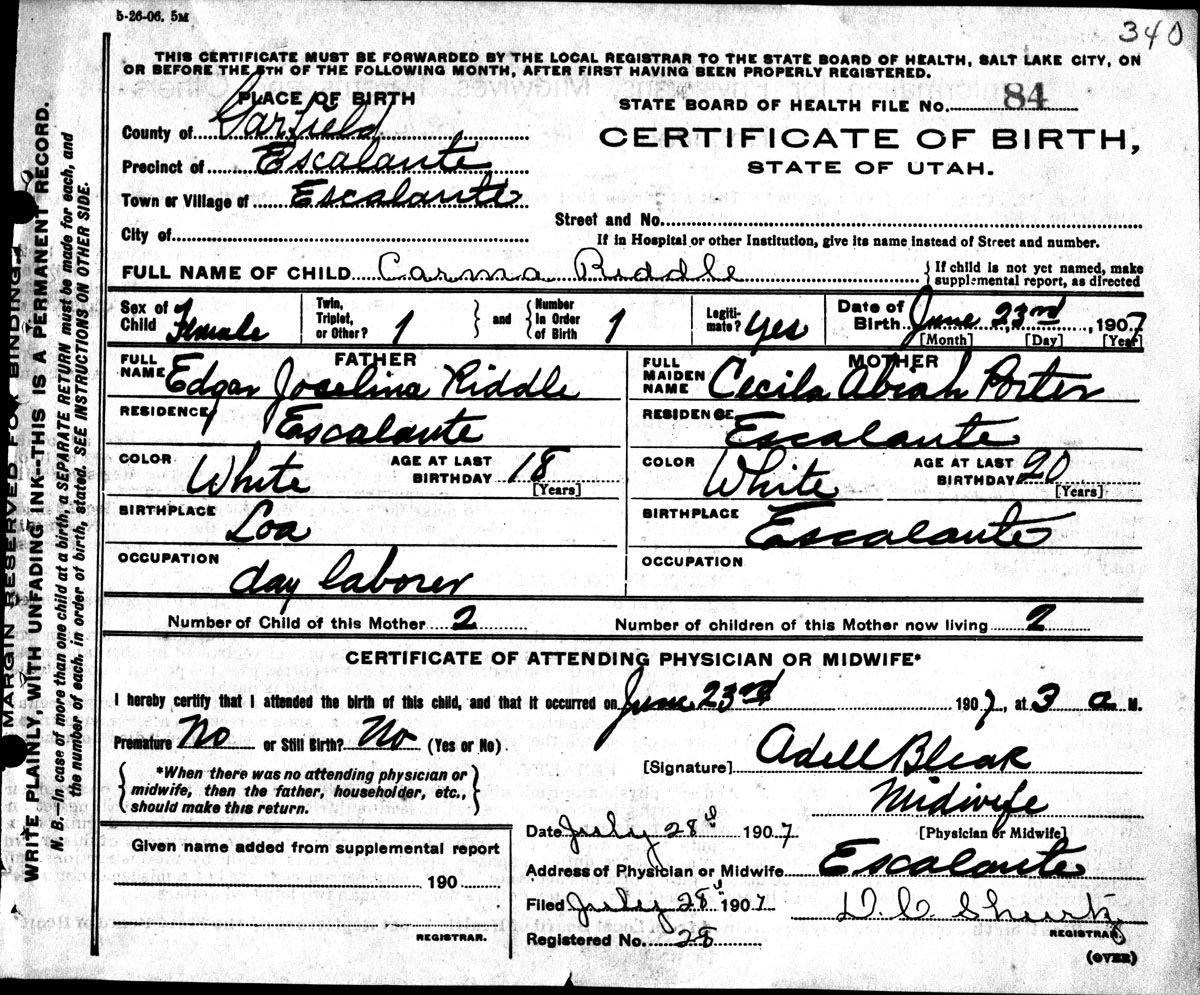 5-26-06. 5M
340
THIS CERTIFICATE MUST BE FORWARDED BY THE LOCAL REGISTRAR TO THE STATE BOARD OF HEALTH, SALT LAKE CITY, ON
OR BEFORE THE 5TH OF THE FOLLOWING MONTH, AFTER FIRST HAVING BEEN PROPERLY REGISTERED.
PLACE OF BIRTH
STATE BOARD OF HEALTH FILE No. 84
County of Garfield
CERTIFICATE OF BIRTH,
Precinct of Escalante
STATE OF UTAH.
Town or Village of Escalante
Street and No.
City of
If in Hospital or other Institution, give its name instead of Street and number.
FULL NAME OF CHILD Carma Riddle { If child is not yet named, make
supplemental report, as directed
Sex of Child Female
Twin, Triplet, or Other? 1 } and { Number in Order of Birth 1
Legitimate? Yes
Date of Birth June 23rd, 1907
[Month] [Day] [Year]
FATHER
FULL NAME Edgar Joselina Riddle
RESIDENCE Escalante
COLOR White AGE AT LAST BIRTHDAY 18
[Years]
BIRTHPLACE Loa
OCCUPATION day laborer
MOTHER
FULL MAIDEN NAME Cecila Abiah Porter
RESIDENCE Escalante
COLOR White AGE AT LAST BIRTHDAY 20
[Years]
BIRTHPLACE Escalante
OCCUPATION
Number of Child of this Mother 2 Number of children of this Mother now living 2
CERTIFICATE OF ATTENDING PHYSICIAN OR MIDWIFE*
I hereby certify that I attended the birth of this child, and that it occurred on June 23rd 1907, at 3 a M.
Premature No or Still Birth? No (Yes or No)
{ *When there was no attending physician or
midwife, then the father, householder, etc.,
should make this return. }
[Signature] Adell Bleak
Midwife
[Physician or Midwife]
Date July 28th 1907
Address of Physician or Midwife Escalante
Filed July 28th 1907
D. C. Shurtz
REGISTRAR
Registered No. 28
(OVER)
Given name added from supplemental report
190
REGISTRAR.
MARGIN RESERVED FOR BINDING.
WRITE PLAINLY, WITH UNFADING INK--THIS IS A PERMANENT RECORD.
N. B.—In case of more than one child at a birth, a SEPARATE RETURN must be made for each, and
the number of each, in order of birth, stated. SEE INSTRUCTIONS ON OTHER SIDE.